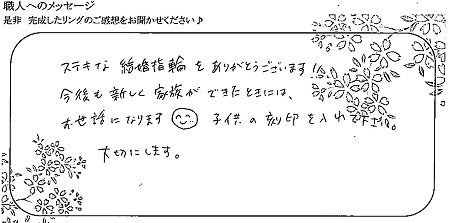 職人へのメッセージ
是非 完成したリングのご感想をお聞かせください♪
ステキな 結婚指輪を ありがとうございます!!
今後も 新しく 家族が できたときには、
お世話になります 子供の刻印を入れて下さい。
大切にします。